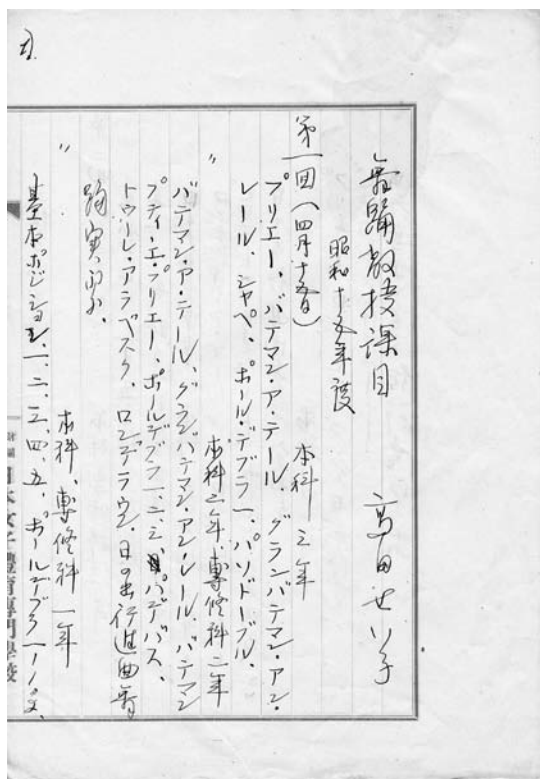 舞踊教授課目
昭和十五年度
高田せい子
第一回(四月十五日) 本科 三年
プリエー、バテマン・ア・テール、グランバテマン・アン・
レール、シャペ、ポール・デブラ一、パソドーブル、
〃 本科二年、専修科二年
バテマン・ア・テール、グランバテマン・アン・レール、バテマン
プティ・エプリエー、ポールデブラ一、二、三、パデバス、
トゥール・アラベスク、ロンデラウン、日の出行進曲舞
踊実習、
〃 本科、専修科 一年
基本ポジション、一、二、三、四、五、ポールデブラ
女子體育專門學校